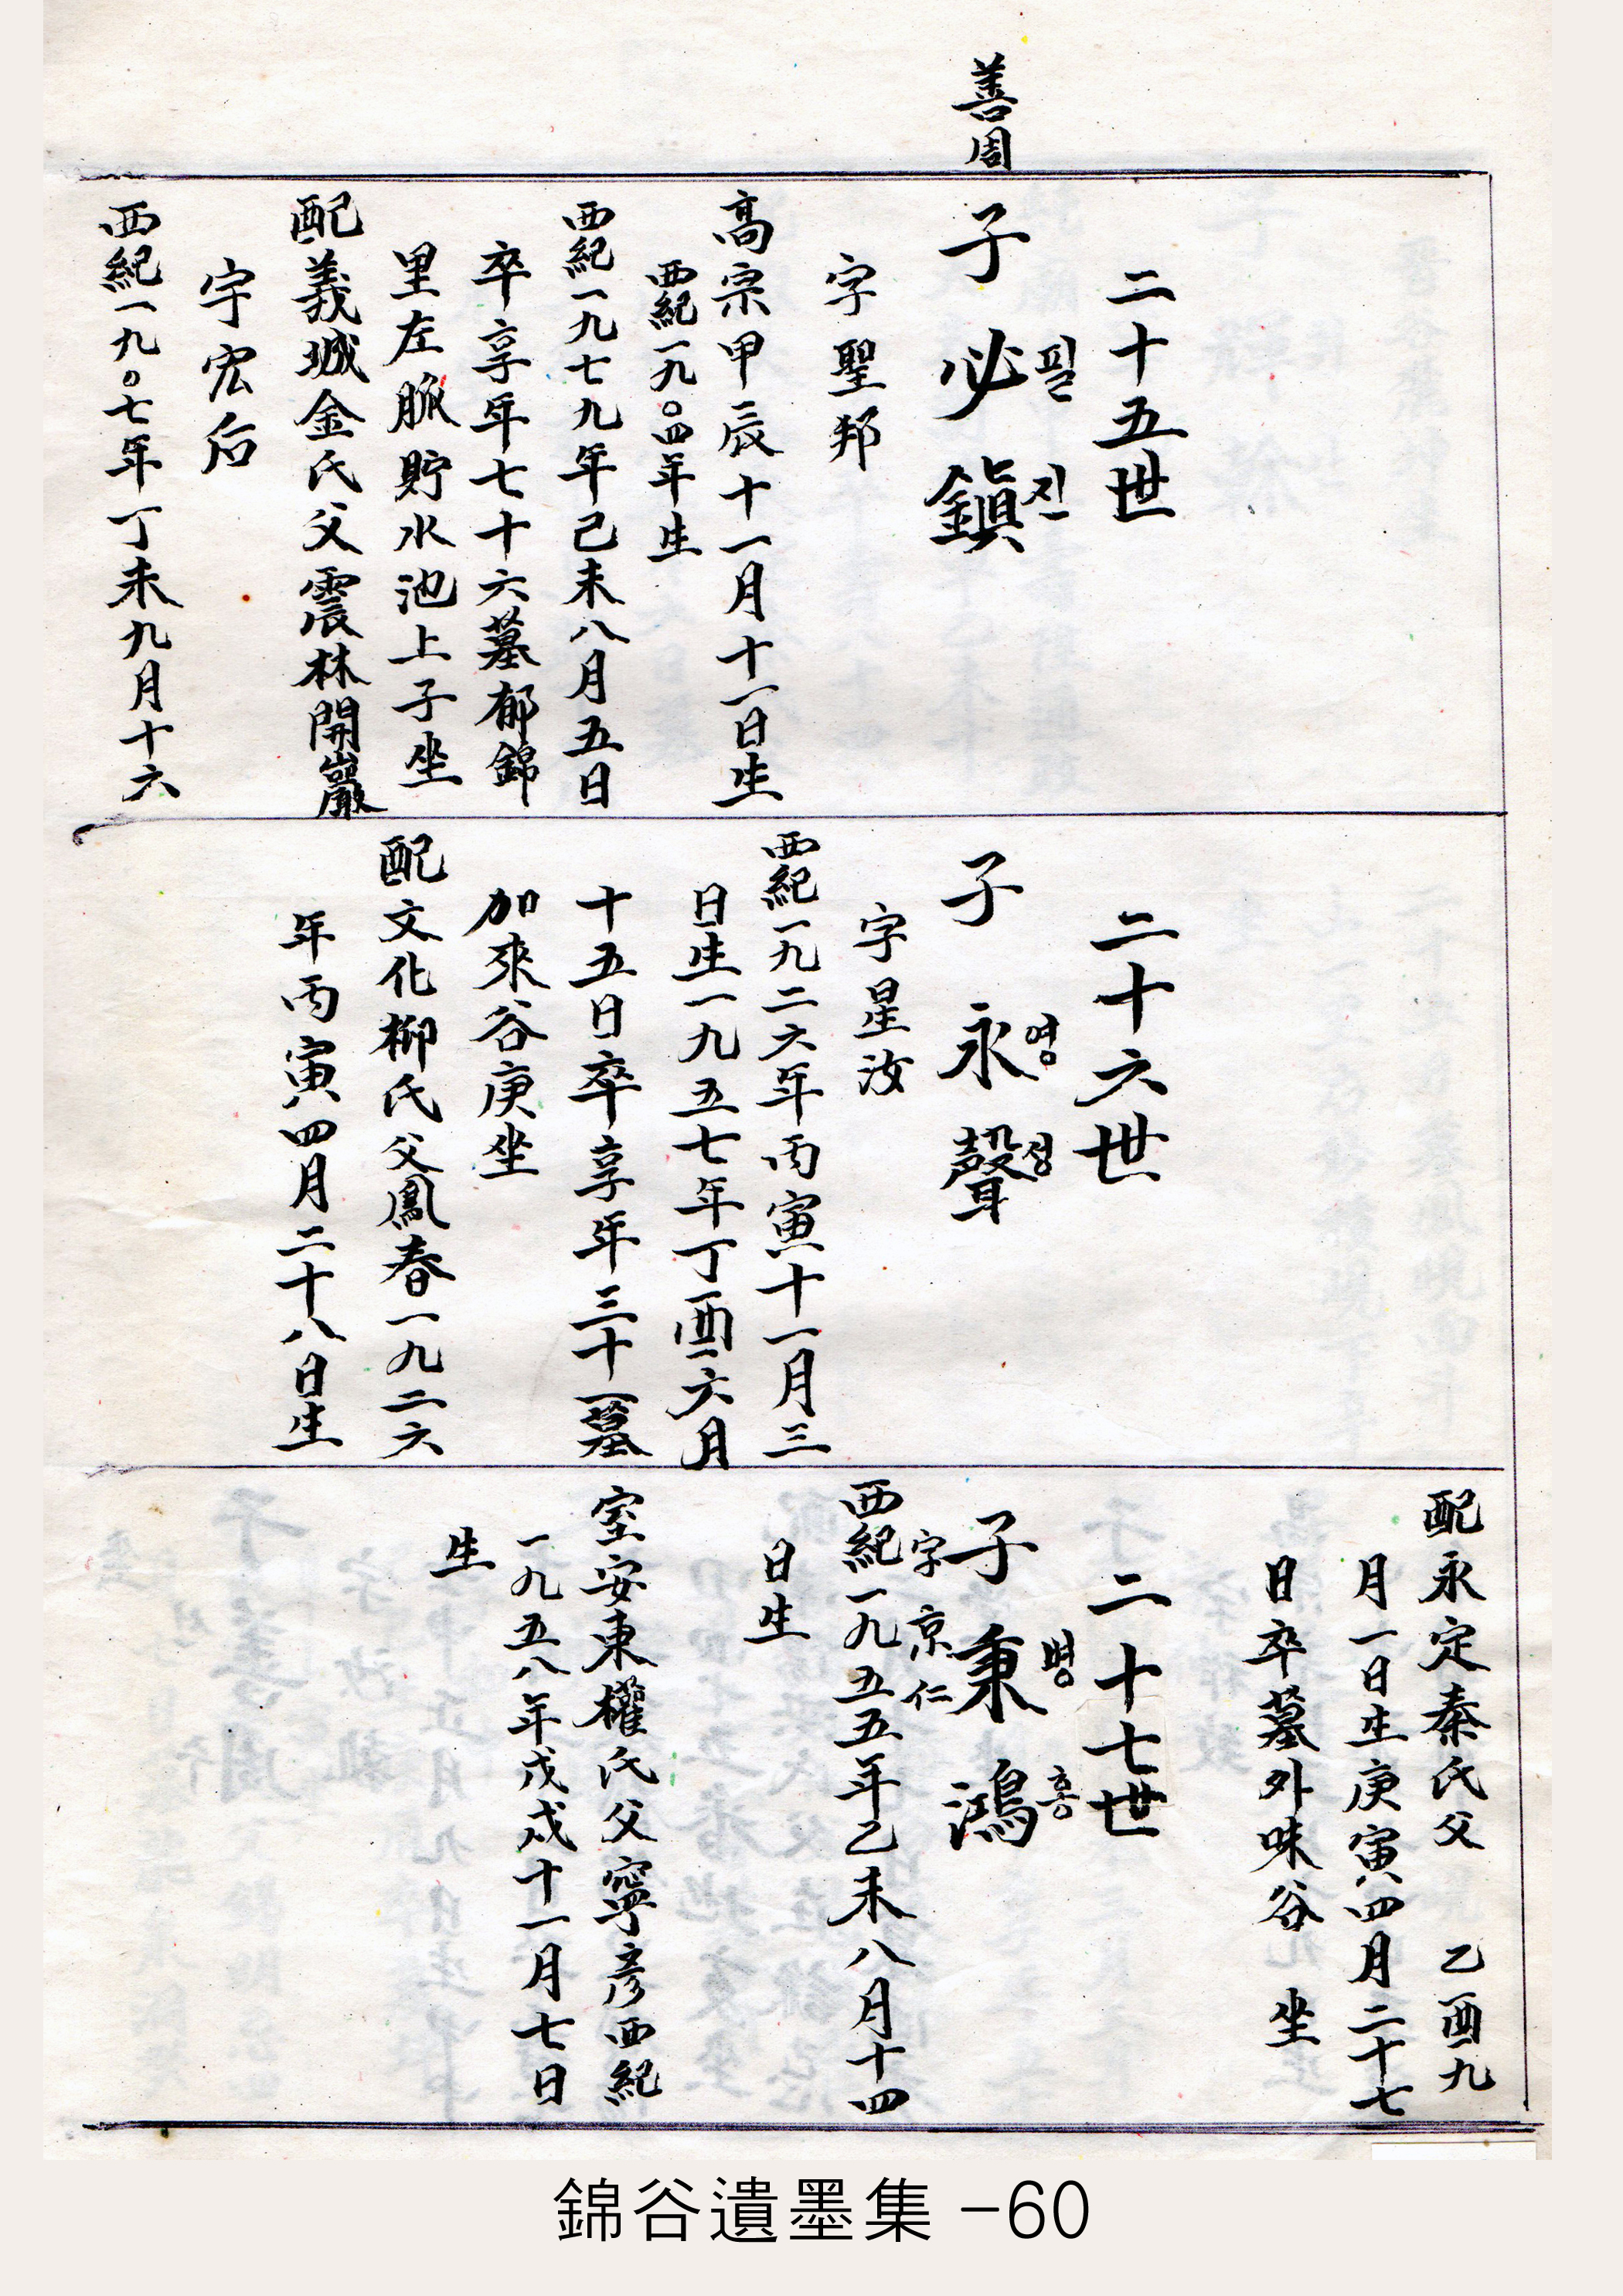 善周
二十五世
子 必鎭
필 진
字聖邦
高宗甲辰十一月十一日生
西紀一九〇四年生
西紀一九七九年己未八月五日
卒享年七十六墓郁錦
里左脈貯水池上子坐
配義城金氏父震林開巖
宇宏后
西紀一九〇七年丁未九月十六
二十六世
子 永聲
영 성
字星汝
西紀一九二六年丙寅十一月三
日生一九五七年丁酉六月
十五日卒享年三十一墓
加來谷庚坐
配文化柳氏父鳳春一九二六
年丙寅四月二十八日生
配永定秦氏父 乙酉九
月一日生庚寅四月二十七
日卒墓外味谷 坐
二十七世
子 秉鴻
병 홍
字京仁
西紀一九五五年乙未八月十四
日生
室安東權氏父寧彦西紀
一九五八年戊戌十一月七日
生
錦谷遺墨集 -60